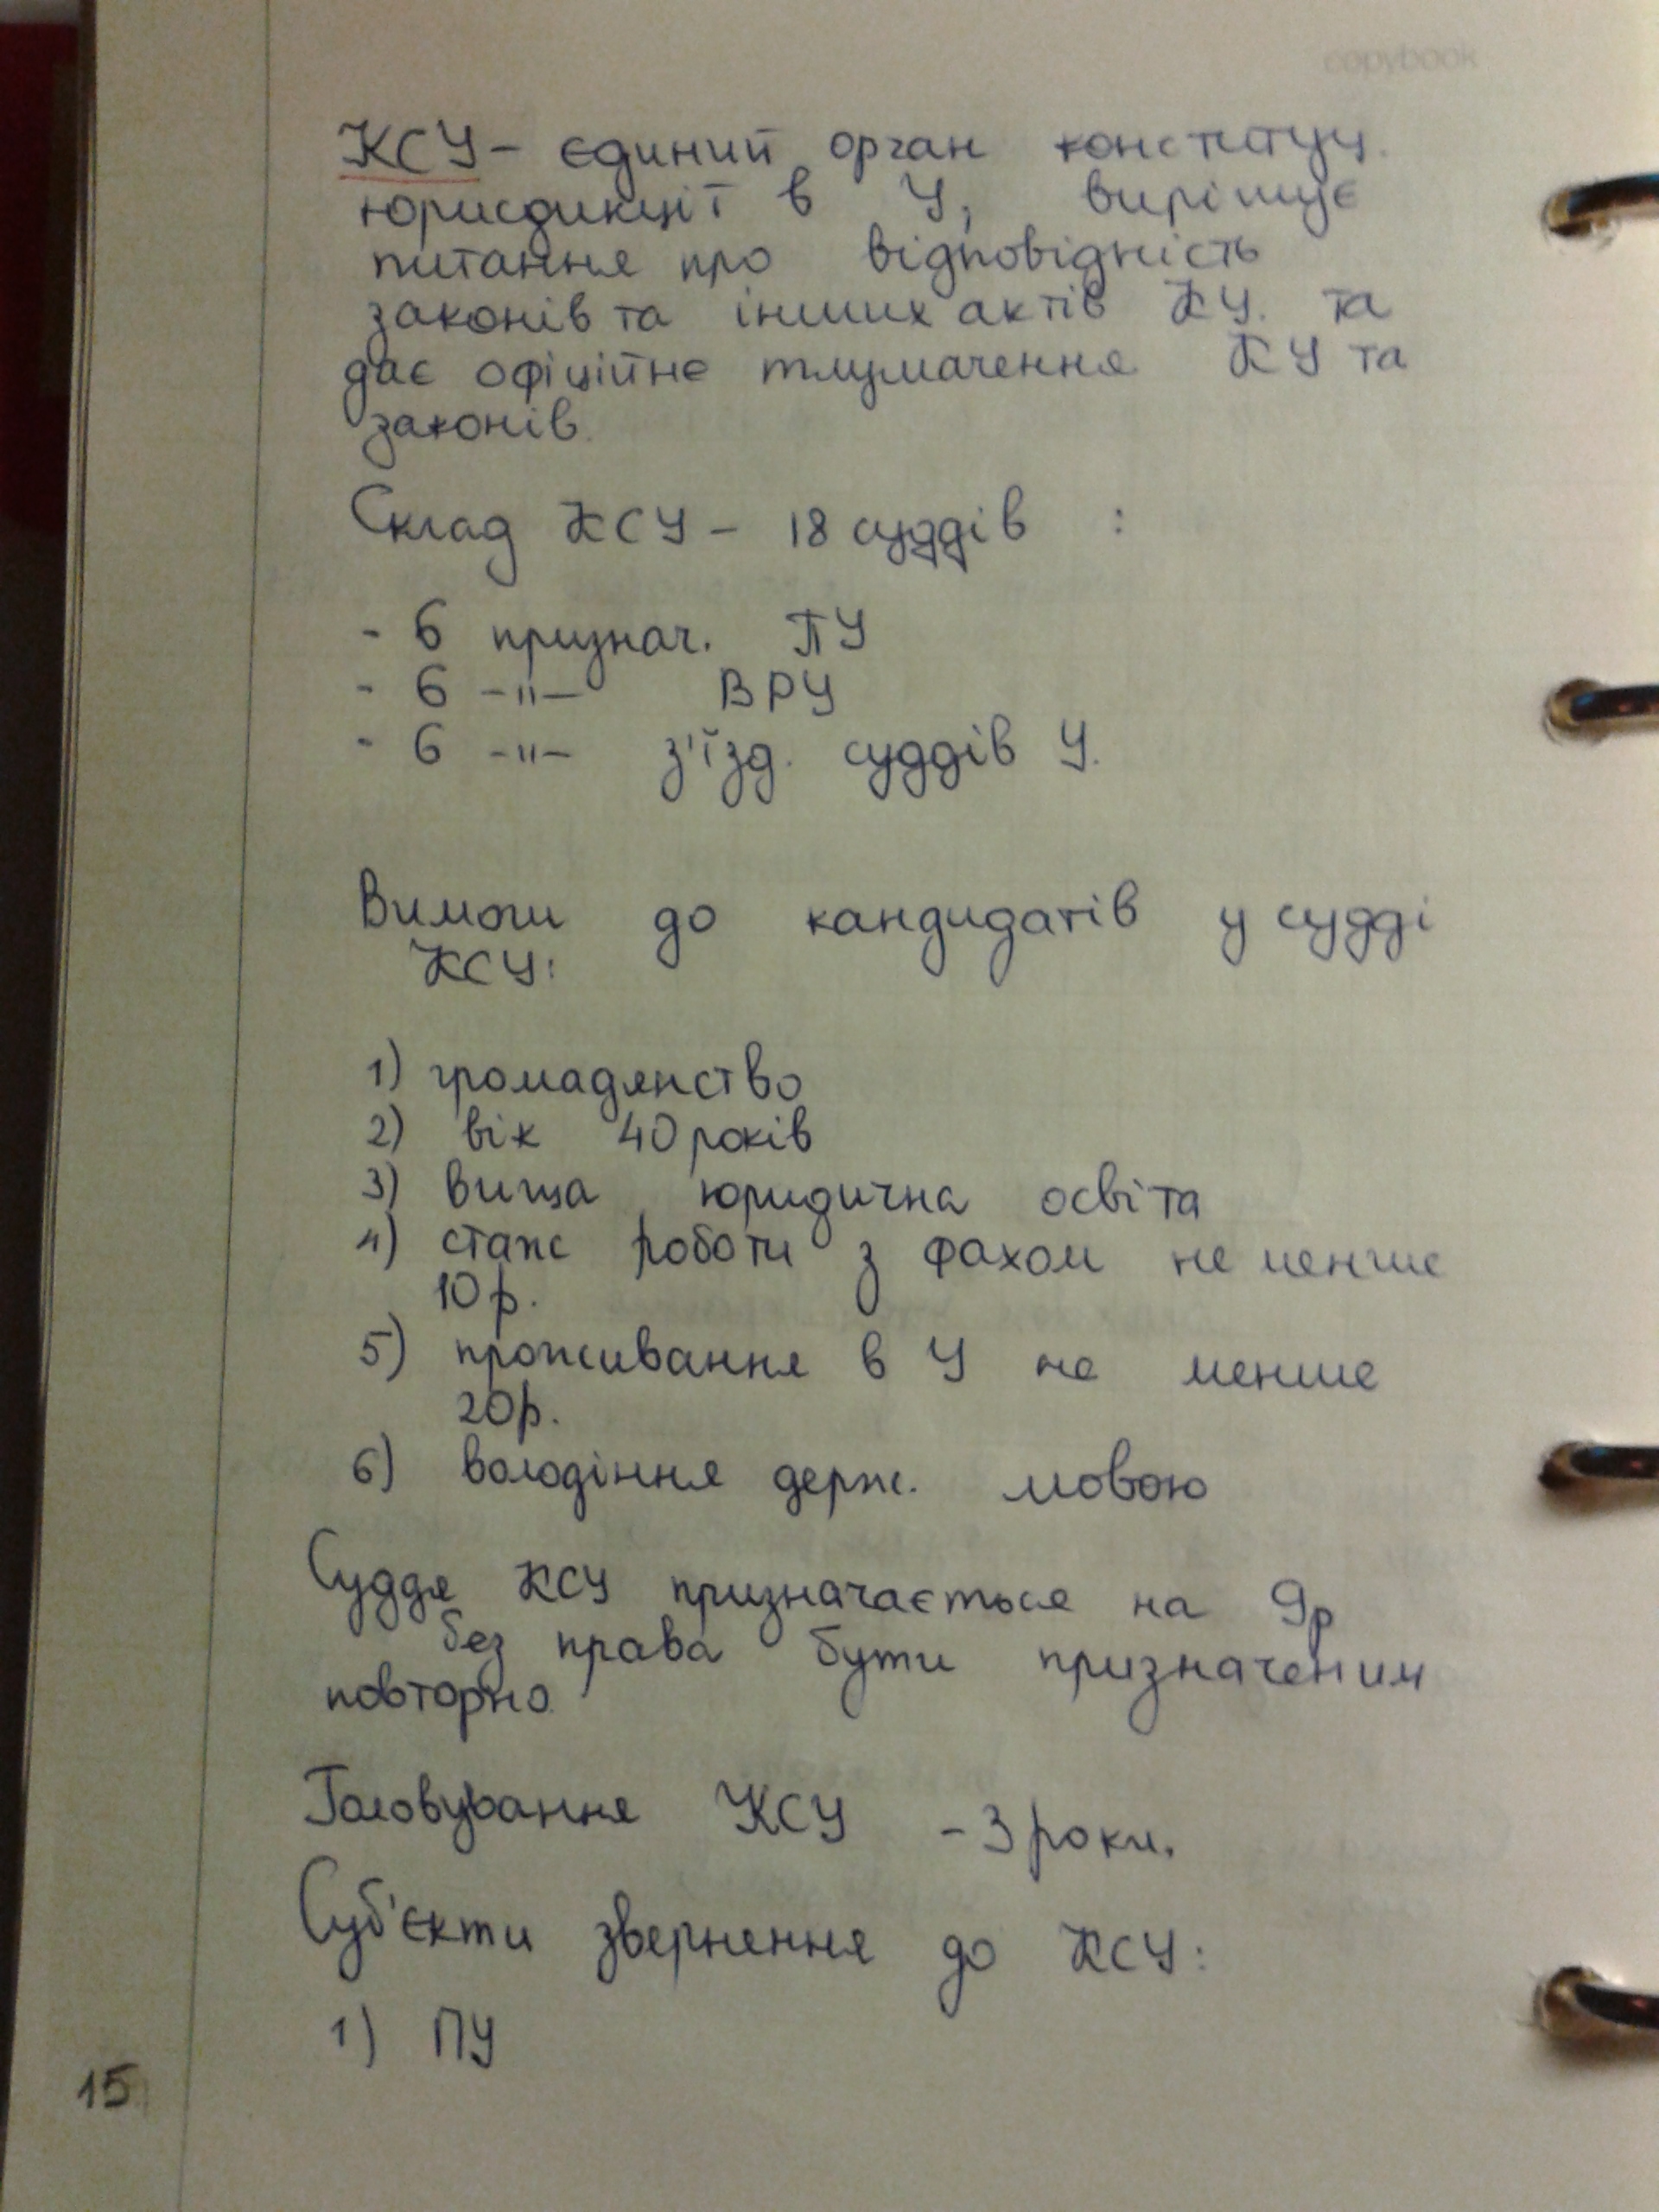 copybook
КСУ - єдиний орган конституц.
юрисдикції в У, вирішує
питання про відповідність
законів та інших актів КУ. та
дає офіційне тлумачення КУ та
законів.
Склад КСУ - 18 суддів :
- 6 признач. ПУ
- 6 -"- ВРУ
- 6 -"- з'їзд. суддів У.
Вимоги до кандидатів у судді
КСУ:
1) громадянство
2) вік 40 років
3) вища юридична освіта
4) стаж роботи з фахом не менше
10 р.
5) проживання в У не менше
20р.
6) володіння держ. мовою
Суддя КСУ призначається на 9р
без права бути призначеним
повторно.
Головування КСУ - 3 роки.
Суб'єкти звернення до КСУ:
1) ПУ
15